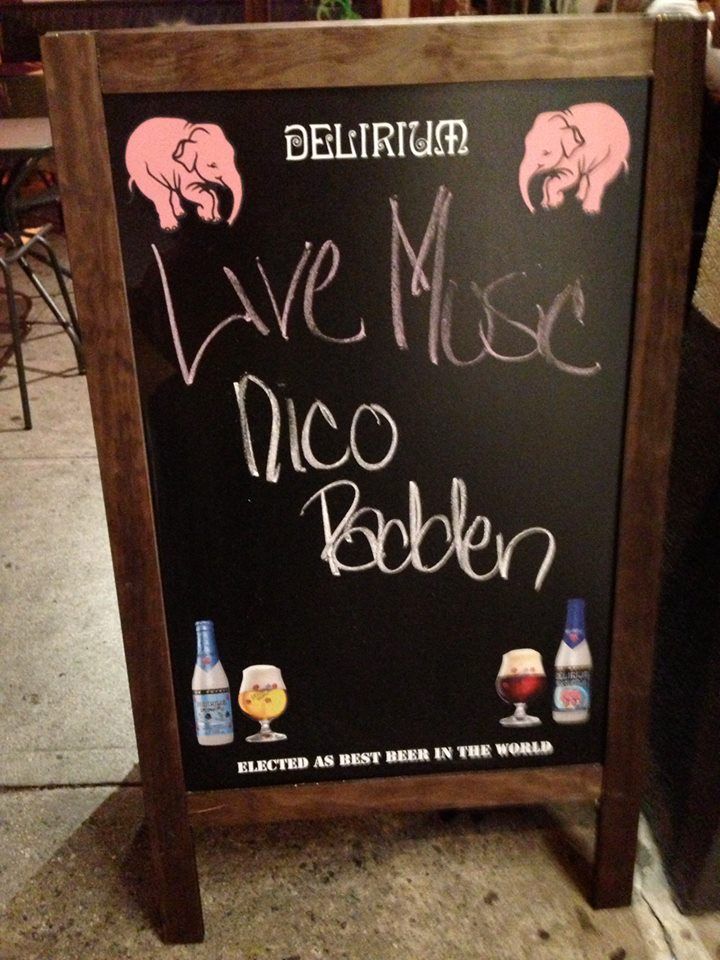 DELIRIUM
Live Music
Nico
Padden
DELIRIUM
DELIRIUM
ELECTED AS BEST BEER IN THE WORLD